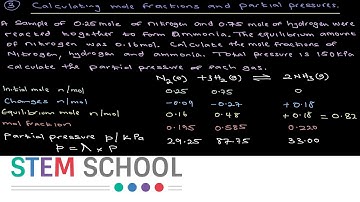 3 Calculating mole fractions and partial pressures.
A sample of 0.25 mole of nitrogen and 0.75 mole of hydrogen were
reacted together to form ammonia. The equilibrium amount
of nitrogen was 0.16mol. Calculate the mole fractions of
Nitrogen, hydrogen and ammonia. Total pressure is 150kPa
calculate the partial pressure of each gas.
N2(g) + 3H2(g) ⇌ 2NH3(g)
Initial mole n/mol 0.25 0.75 0
Changes n/mol -0.09 -0.27 +0.18
Equilibrium mole n/mol 0.16 0.48 +0.18 = 0.82
mol fraction 0.195 0.585 0.220
Partial pressure p/kPa 29.25 87.75 33.00
P = x P
STEM SCHOOL